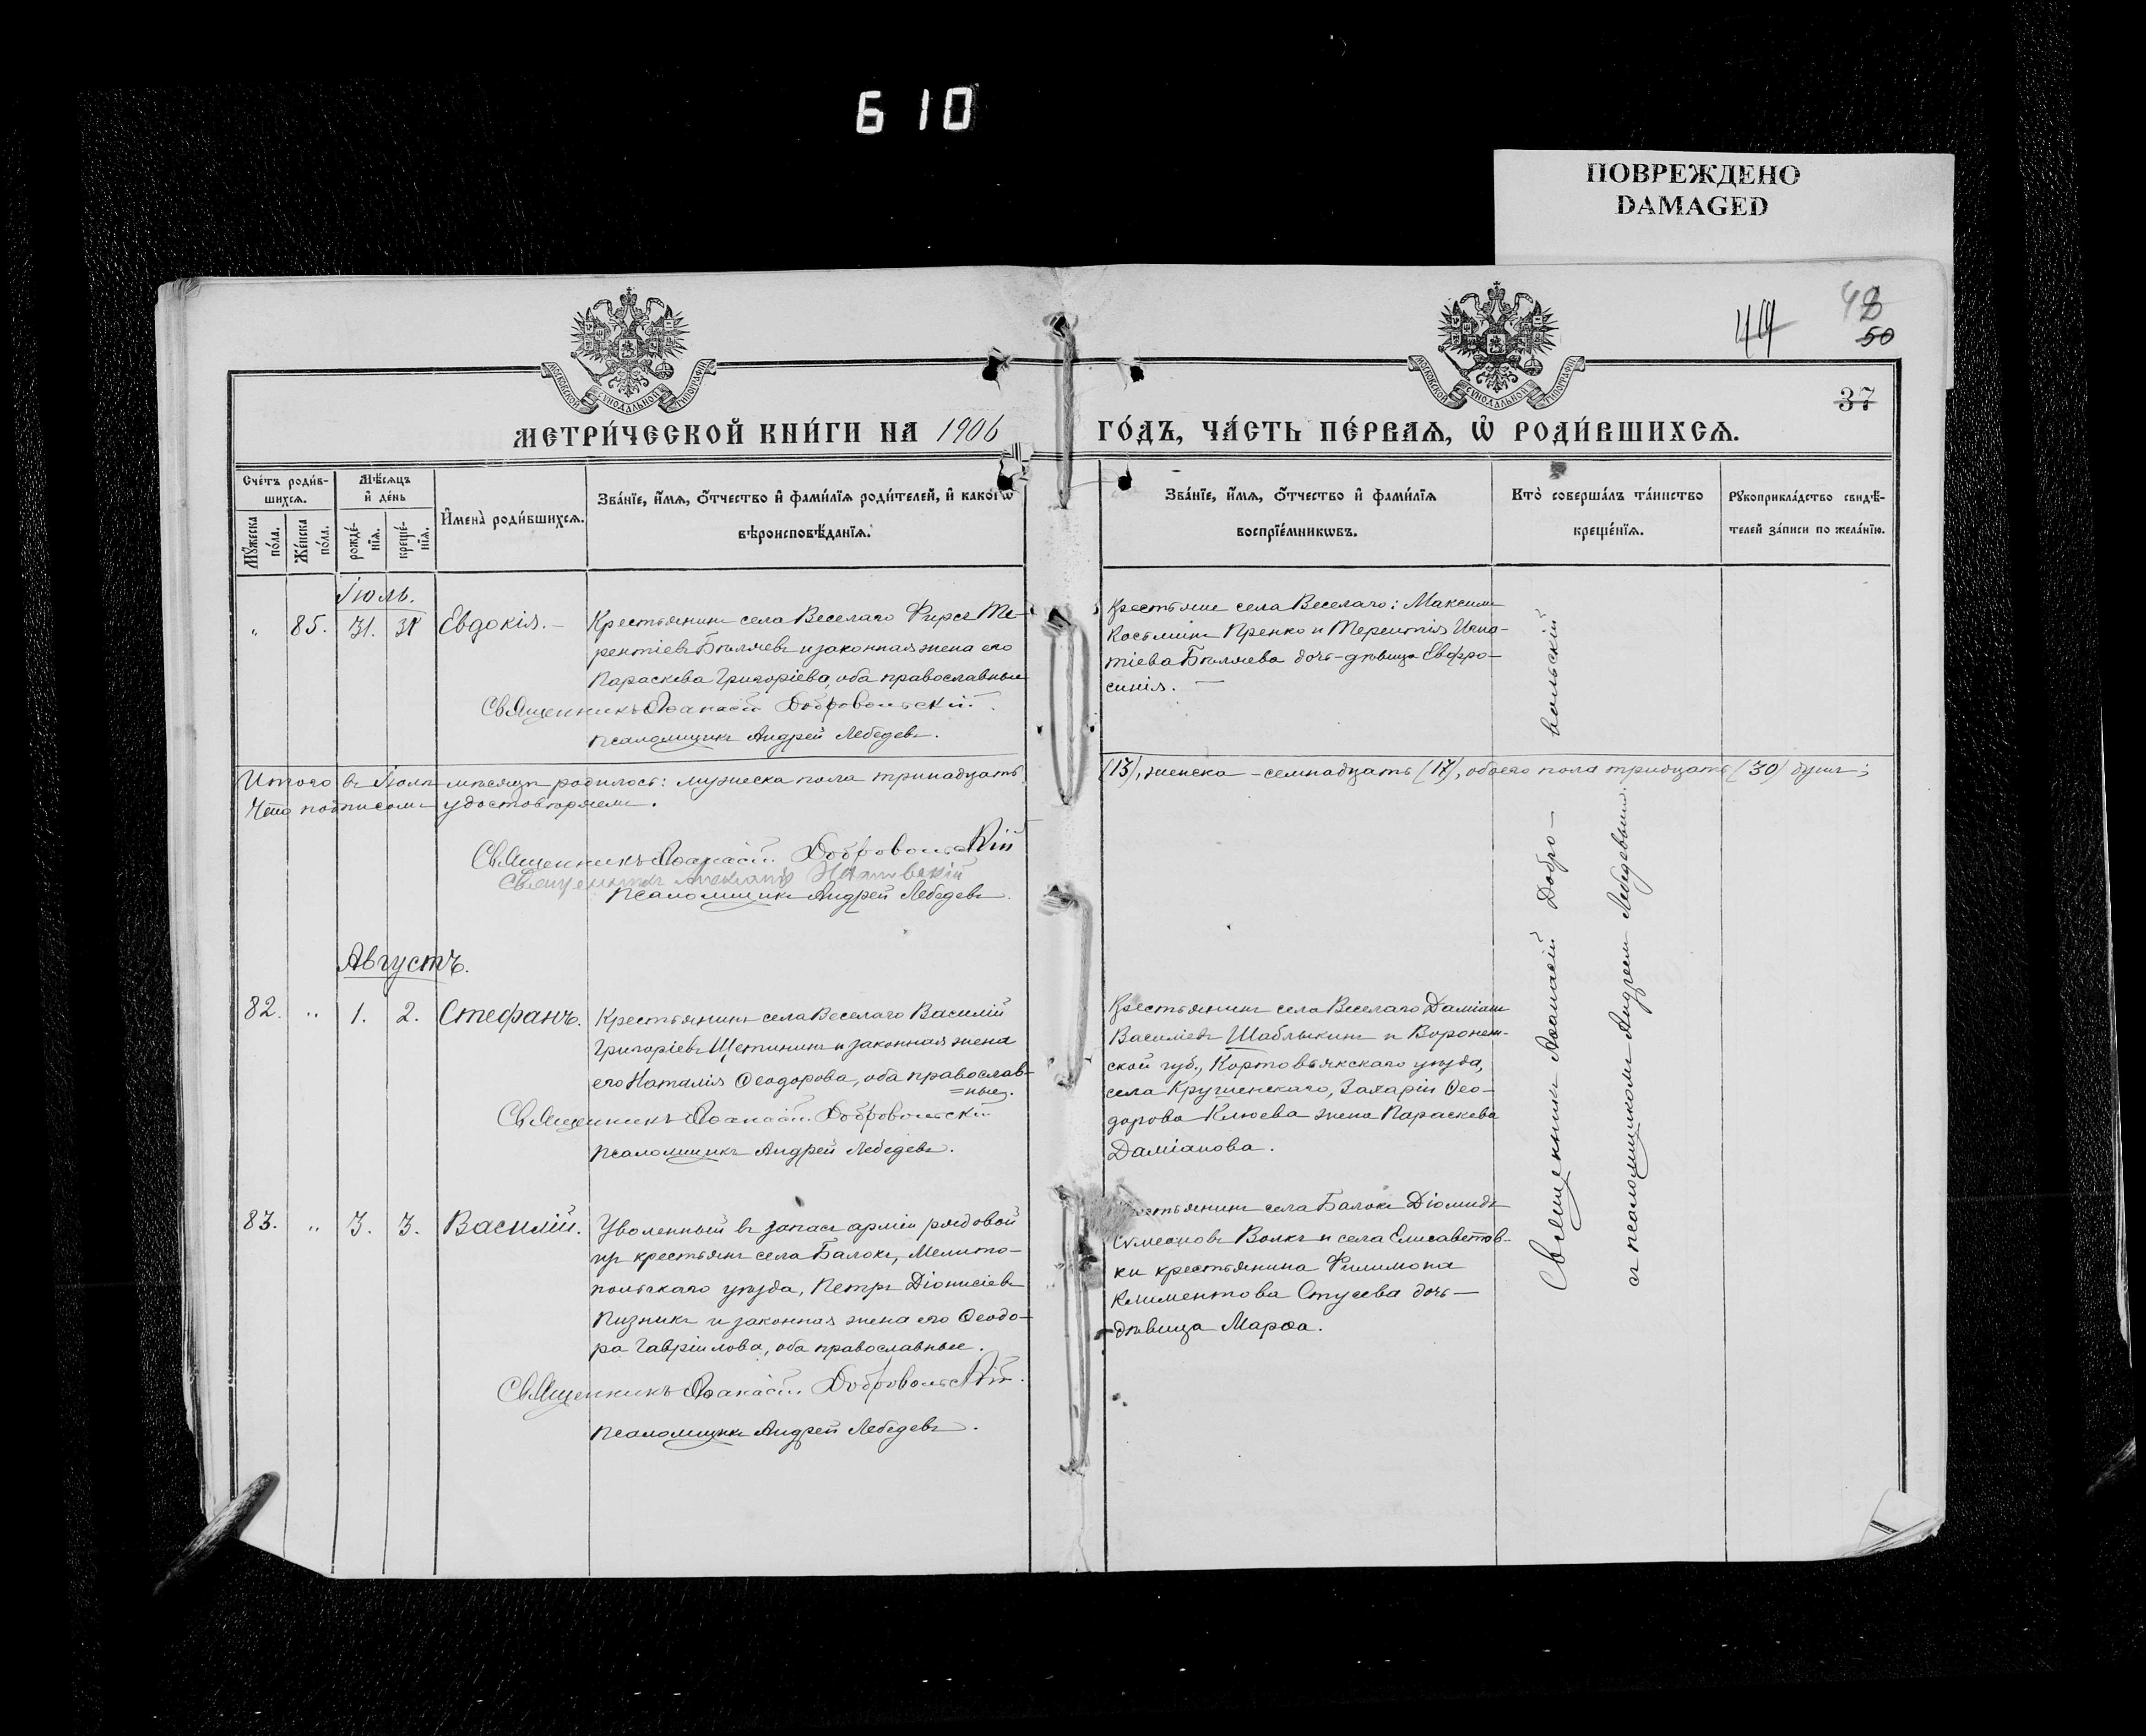 610
ПОВРЕЖДЕНО
DAMAGED
44
48
50
37
МОСКОВСКОЙ СѴНОДАЛЬНОЙ ТИПОГРАФІИ
МОСКОВСКОЙ СѴНОДАЛЬНОЙ ТИПОГРАФІИ
МЕТРИ́ЧЕСКОЙ КНИ́ГИ НА 1906 ГО́ДЪ, ЧА́СТЬ ПЕ́РВАѦ, Ѡ҆ РОДИ́ВШИХСѦ.
Сче́тъ роди́в-
шихсѧ.
Мꙋ́жеска по́ла.
Же́нска по́ла.
Мѣ́сѧцъ
и҆ де́нь
рожде́-
нїѧ.
креще́-
нїѧ.
И҆мена̀ роди́вшихсѧ.
Зва́нїе, и҆́мѧ, ѻ҆́тчество и҆ фами́лїѧ роди́телей, и҆ како́гѡ
вѣроисповѣ́данїѧ.
Зва́нїе, и҆́мѧ, ѻ҆́тчество и҆ фами́лїѧ
воспрїе́мникѡвъ.
Кто̀ соверша́лъ та́инство
креще́нїѧ.
Рꙋкоприкла́дство свидѣ́-
телей за́писи по жела́нїю.
Іюль.
„ 85. 31. 31 Евдокія. –
Крестьянинъ села Веселаго Фирсъ Те-
рентіевъ Бѣляевъ и законная жена его
Параскева Григоріева, оба православные
Священникъ Аѳанасій Добровольскій.
Псаломщикъ Андрей Лебедевъ.
Крестьяне села Веселаго: Максимъ
Косьминъ Пренко и Терентія Игна-
тіева Бѣляева дочь-дѣвица Евфро-
синія. –
Итого въ Іюлѣ мѣсяцѣ родилось: мужеска пола тринадцать (13), женска – семнадцать (17), обоего пола тридцать (30) душъ;
что подписомъ удостовѣряемъ.
Священникъ Аѳанасій Добровольскій
Священникъ
Псаломщикъ Андрей Лебедевъ.
Августъ.
82. „ 1. 2. Стефанъ.
Крестьянинъ села Веселаго Василій
Григоріевъ Щетининъ и законная жена
его Наталія Ѳеодорова, оба православ-
=ные.
Священникъ Аѳанасій Добровольскій
Псаломщикъ Андрей Лебедевъ.
Крестьянинъ села Веселаго Даміанъ
Василіевъ Шаблыкинъ и Воронеж-
ской губ., Коротоякскаго уѣзда,
села Захарія Ѳео-
дорова Клюева жена Параскева
Даміанова.
83. „ 3. 3. Василій.
Уволенный въ запасъ арміи рядовой
изъ крестьянъ села Балокъ, Мелито-
польскаго уѣзда, Петръ Діонисіевъ
Пизникъ и законная жена его Ѳеодо-
ра Гавріилова, оба православные.
Священникъ Аѳанасій Добровольскій.
Псаломщикъ Андрей Лебедевъ.
Крестьянинъ села Балокъ Діомидъ
Сѵмеоновъ Волкъ и села Елисаветов-
ки крестьянина Филимона
Климентова Стусева дочь –
дѣвица Марѳа.
Священникъ Аѳанасій Добро-
вольскій
съ псаломщикомъ Андреемъ Лебедевымъ.